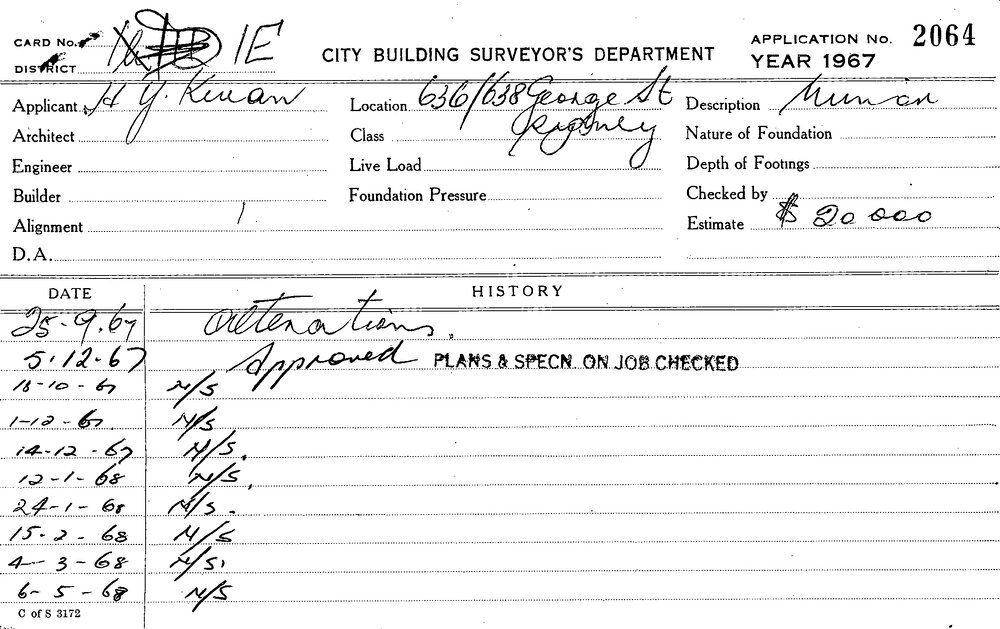 CARD No. 1E
DISTRICT
CITY BUILDING SURVEYOR'S DEPARTMENT
APPLICATION No. 2064
YEAR 1967
Applicant H Y. Kwan
Location 636/638 George St
Sydney
Description
Architect
Class
Nature of Foundation
Engineer
Live Load
Depth of Footings
Builder
Foundation Pressure
Checked by
Alignment
Estimate $ 20 000
D.A.
DATE HISTORY
25-9.67 alterations.
5.12-67 Approved PLANS & SPECN. ON JOB CHECKED
18-10-67 N/S
1-12-67. N/S
14-12-67 N/S.
12-1-68 N/S.
24-1-68 N/S.
15-2-68 N/S
4-3-68 N/S.
6-5-68 N/S
C of S 3172